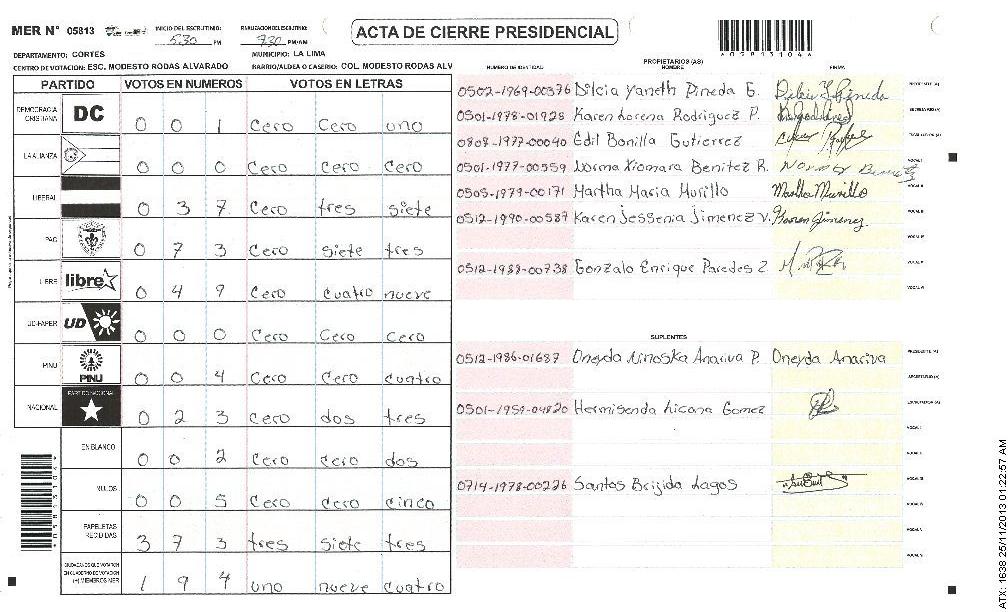 MER N° 05813
INICIO DEL ESCRUTINIO: 5:30 PM
FINALIZACION DEL ESCRUTINIO: 9:30 PM/AM
ACTA DE CIERRE PRESIDENCIAL
A05813104A
DEPARTAMENTO: CORTES
MUNICIPIO: LA LIMA
CENTRO DE VOTACION: ESC. MODESTO RODAS ALVARADO
BARRIO/ALDEA O CASERIO: COL. MODESTO RODAS ALV
PARTIDO VOTOS EN NUMEROS VOTOS EN LETRAS
DEMOCRACIA CRISTIANA DC 0 0 1 Cero Cero uno
LA ALIANZA 0 0 0 Cero Cero Cero
LIBERAL 0 3 7 Cero tres siete
PAC 0 7 3 Cero siete tres
LIBRE libre 0 4 9 Cero cuatro nueve
UD-FAPER UD 0 0 0 Cero Cero Cero
PINU PINU 0 0 4 Cero Cero cuatro
NACIONAL PARTIDO NACIONAL 0 2 3 Cero dos tres
EN BLANCO 0 0 2 Cero Cero dos
NULOS 0 0 5 Cero Cero cinco
PAPELETAS RECIBIDAS 3 7 3 tres siete tres
CIUDADANOS QUE VOTARON EN CUADERNO DE VOTACION (+) MIEMBROS MER 1 9 4 uno nueve cuatro
PROPIETARIOS (AS)
NUMERO DE IDENTIDAD NOMBRE FIRMA
0502-1969-00376 Dilcia Yaneth Pineda G. PRESIDENTE (A)
0501-1978-01928 Karen Lorena Rodriguez P. SECRETARIO (A)
0808-1977-00040 Edil Bonilla Gutierrez ESCRUTADOR (A)
0501-1977-00559 Norma Xiomara Benitez R. VOCAL I
0505-1979-00171 Martha Maria Murillo Martha Murillo VOCAL II
0512-1990-00587 Karen Jessenia Jimenez V. Karen Jimenez VOCAL III
0512-1988-00738 Gonzalo Enrique Paredes Z.
SUPLENTES
0512-1986-01687 Oneyda Ninoska Anariva P. Oneyda Anariva PRESIDENTE (A)
SECRETARIO (A)
0501-1959-04820 Hermisenda Licona Gomez ESCRUTADOR (A)
VOCAL I
0714-1978-00226 Santos Brijida Lagos
ATX: 1638 25/11/2013 01:22:57 AM